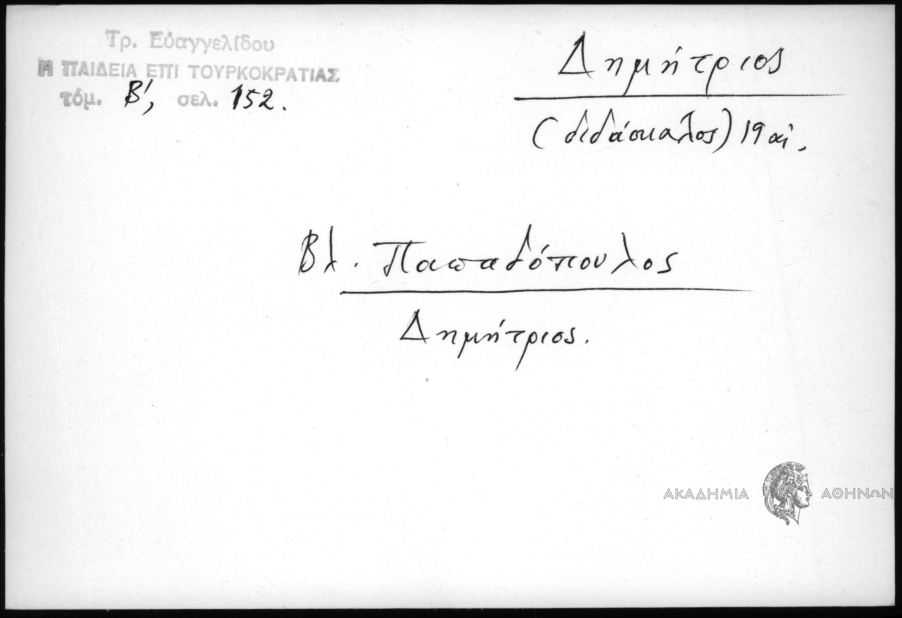 Τρ. Εὐαγγελίδου
Η ΠΑΙΔΕΙΑ ΕΠΙ ΤΟΥΡΚΟΚΡΑΤΙΑΣ
τόμ. Β', σελ. 152.
Δημήτριος
(διδάσκαλος) 19 αἰ.
Βλ. Παπαδόπουλος
Δημήτριος.
ΑΚΑΔΗΜΙΑ ΑΘΗΝΩΝ